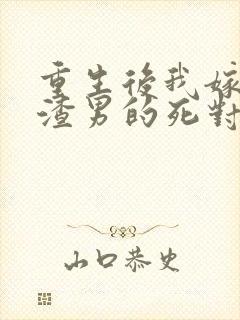 重生後我嫁
渣男的死對
山口恭史